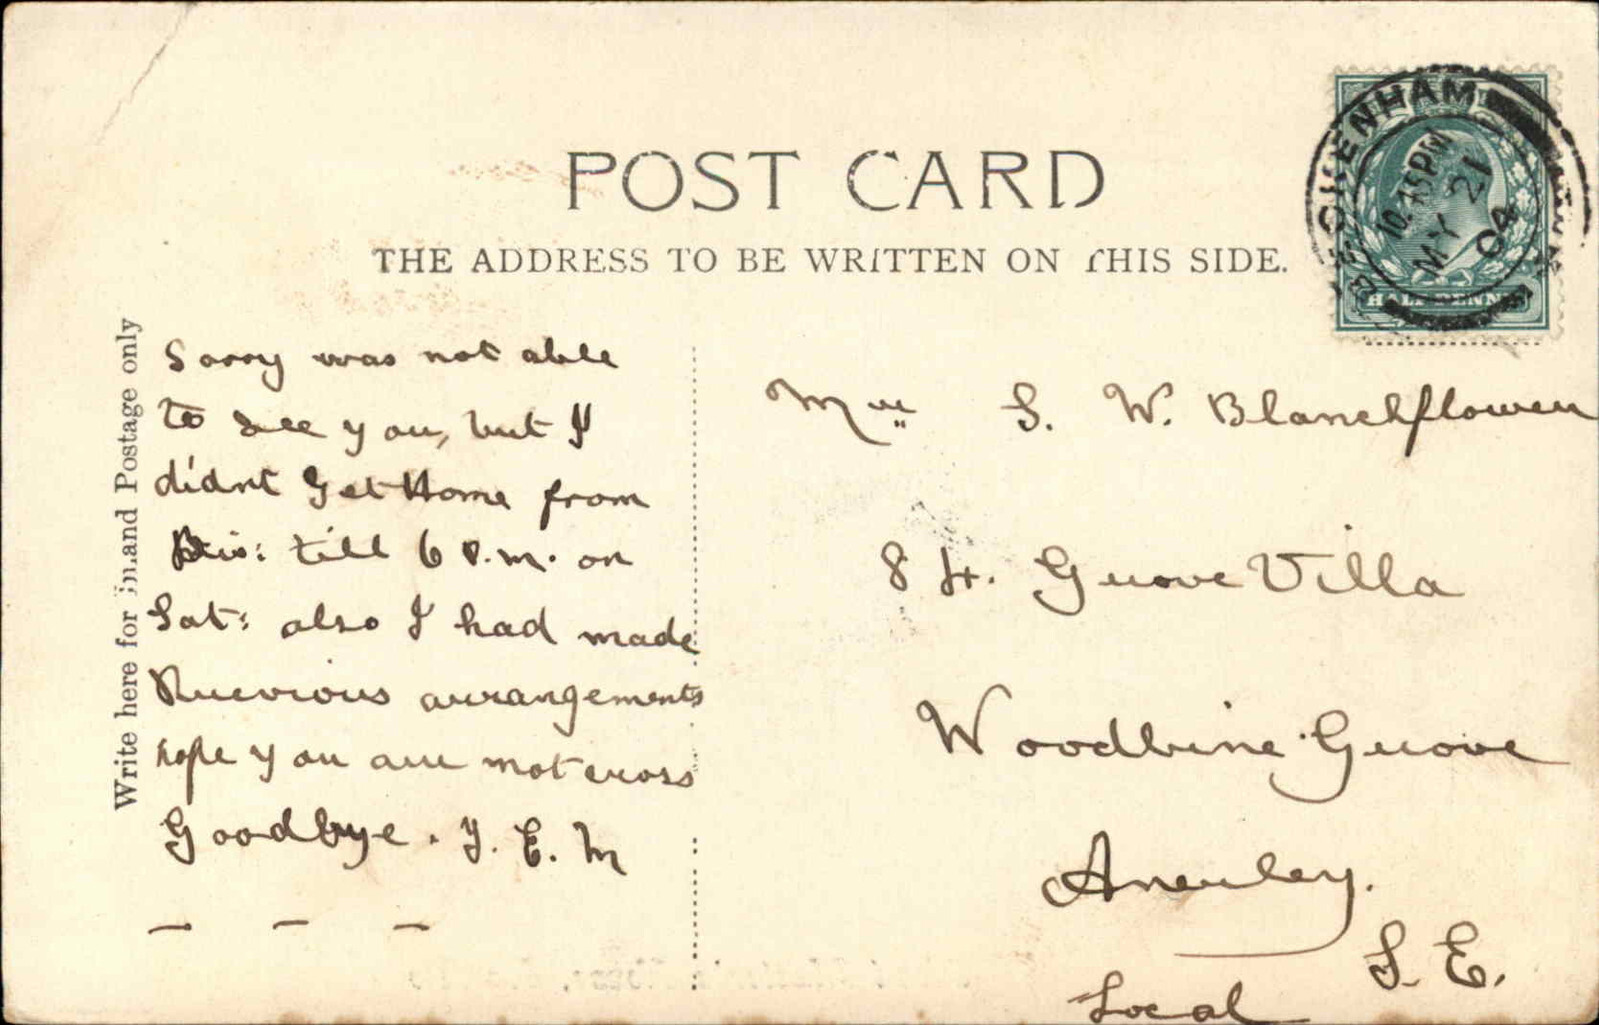 POST CARD
THE ADDRESS TO BE WRITTEN ON THIS SIDE.
BECKENHAM
10.45PM
MY 21
04
HALF PENNY
Write here for inland Postage only
Sorry was not able
to see you, but I
didnt Get Home from
till 6 P.m. on
Sat: also I had made
Previous arrangements
hope you are not cross
Goodbye. J. E. M
— — —
S. W. Blanchflower
84. Grove Villa
Woodbine Grove
Anerley.
S. E.
Local